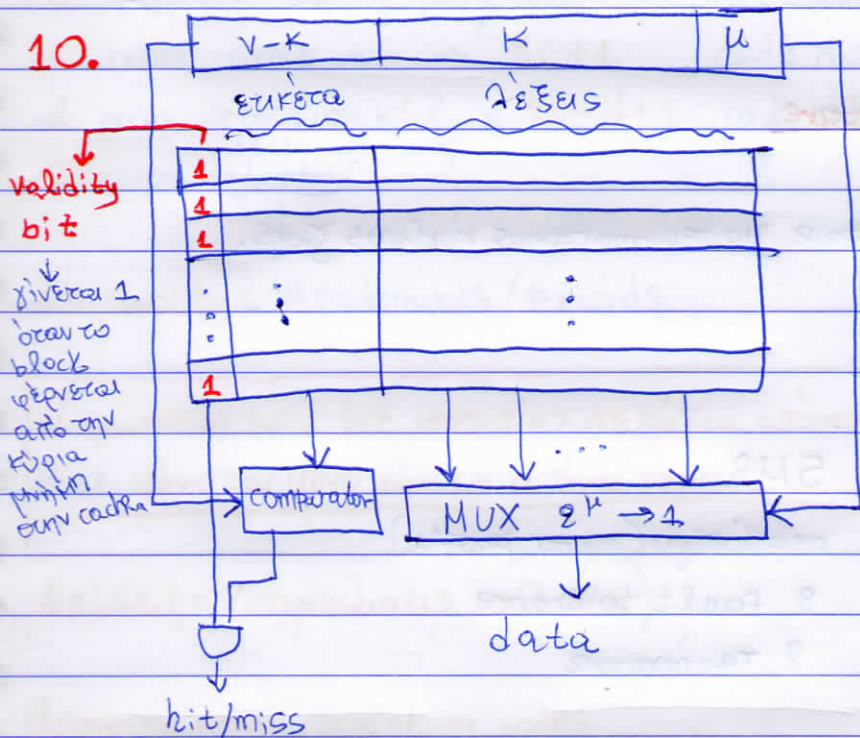 10.
ν-κ κ μ
ετικέτα λέξεις
validity
bit
1
1
1
1
γίνεται 1
όταν το
block
φέρνεται
από την
κύρια
μνήμη
στην cache
comparator
MUX 2^μ → 1
data
hit/miss